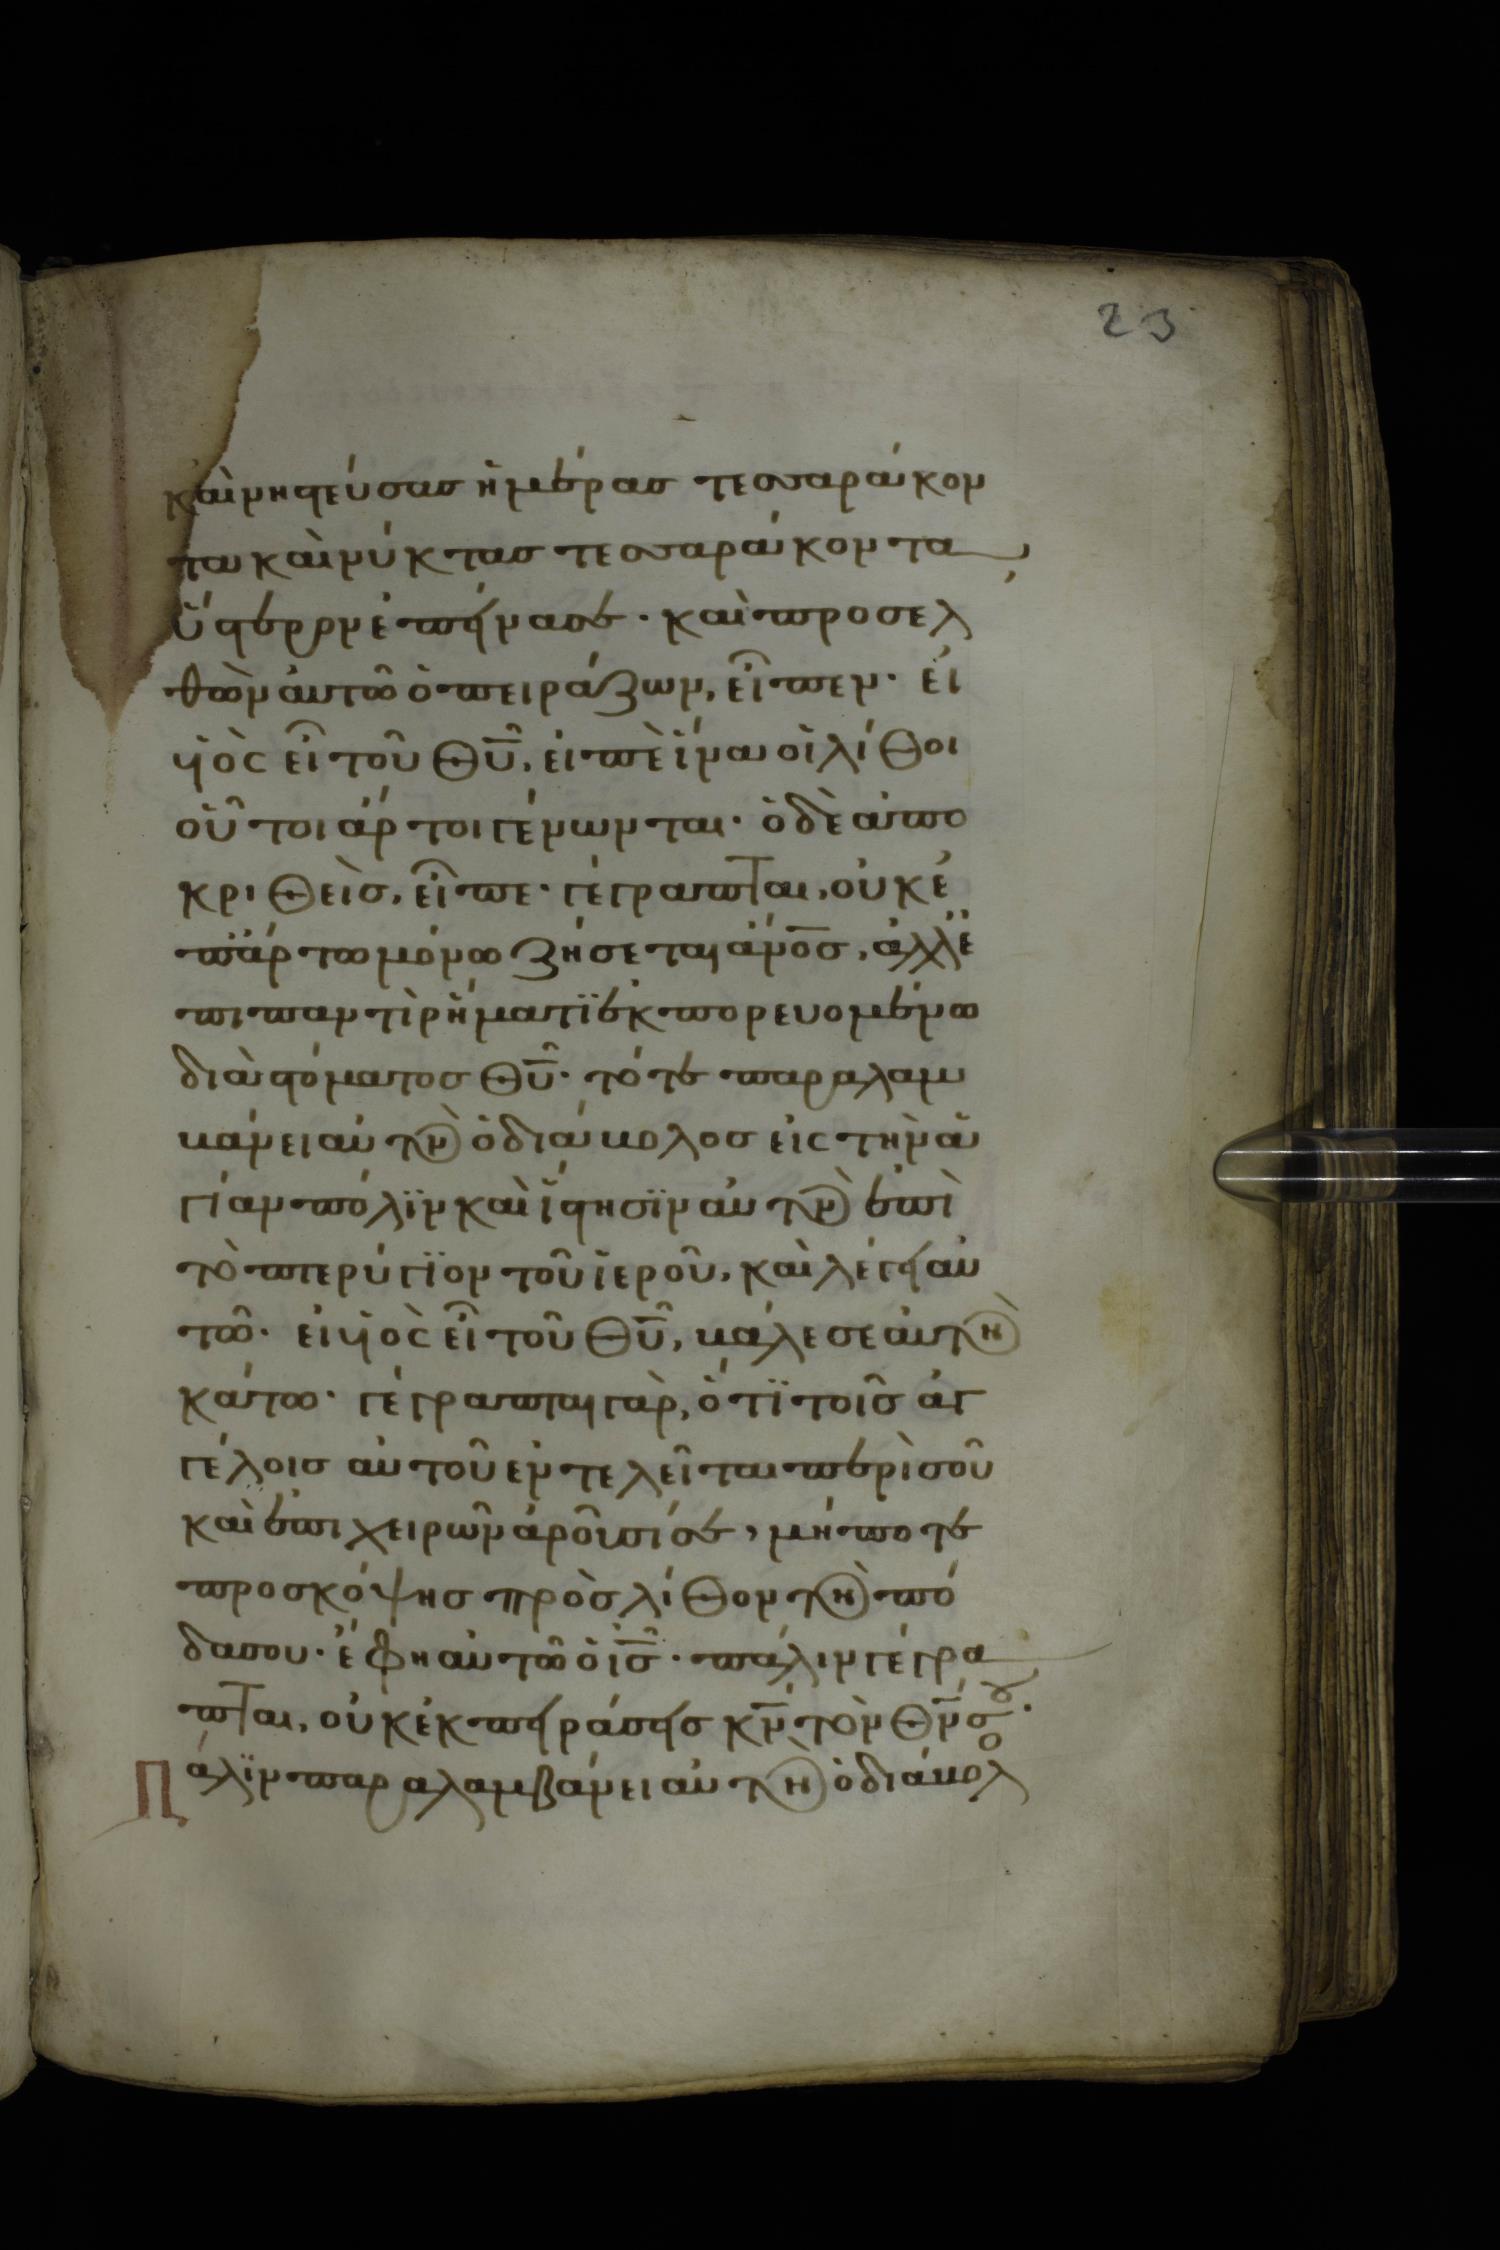 23
καὶ νηστεύσας ἡμέρας τεσσαράκον
τα καὶ νύκτας τεσσαράκοντα,
ὕστερον ἐπείνασε· καὶ προσελ
θὼν αὐτῶ ὁ πειράζων, εἶπεν· εἰ
υἱὸς εἶ τοῦ θῦ, εἰπὲ ἵνα οἱ λίθοι
οὗτοι ἄρτοι γένωνται· ὁ δὲ ἀπο
κριθεὶς, εἶπε· γέγραπται, οὐκ ἐ
π ἄρτω μόνω ζήσεται ἄνος, ἀλλ ἐ
πι παντὶ ρήματι ἐκπορευομένω
διὰ στόματος θῦ· τότε παραλαμ
βάνει αὐτὸν ὁ διάβολος εἰς τὴν ἁ
γίαν πόλιν καὶ ἵστησιν αὐτὸν ἐπὶ
τὸ πτερύγιον τοῦ ἱεροῦ, καὶ λέγει αὐ
τῶ· εἰ υἱὸς εἶ τοῦ θῦ, βάλε σεαυτὸν
κάτω· γέγραπται γὰρ, ὅτι τοῖς ἀγ
γέλοις αὐτοῦ ἐντελεῖται περὶ σοῦ
καὶ ἐπι χειρῶν ἀροῦσί σε, μήποτε
προσκόψης πρὸς λίθον τὸν πό
δα σου· ἔφη αὐτῶ ὁ ις· πάλιν γέγρα
πται, οὐκ ἐκπειράσεις κν τὸν θν σου·
Πάλιν παραλαμβάνει αὐτὸν ὁ διάβολο